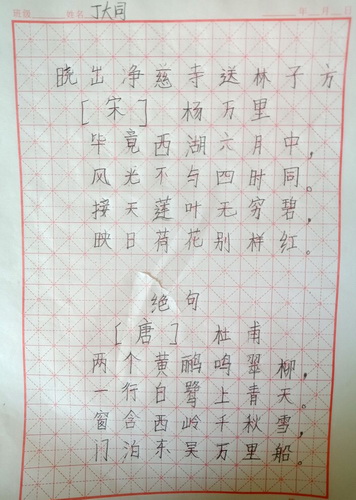 班级 姓名 丁大同 年 月 日
晓出净慈寺送林子方
[宋] 杨万里
毕竟西湖六月中，
风光不与四时同。
接天莲叶无穷碧，
映日荷花别样红。
绝句
[唐] 杜甫
两个黄鹂鸣翠柳，
一行白鹭上青天。
窗含西岭千秋雪，
门泊东吴万里船。